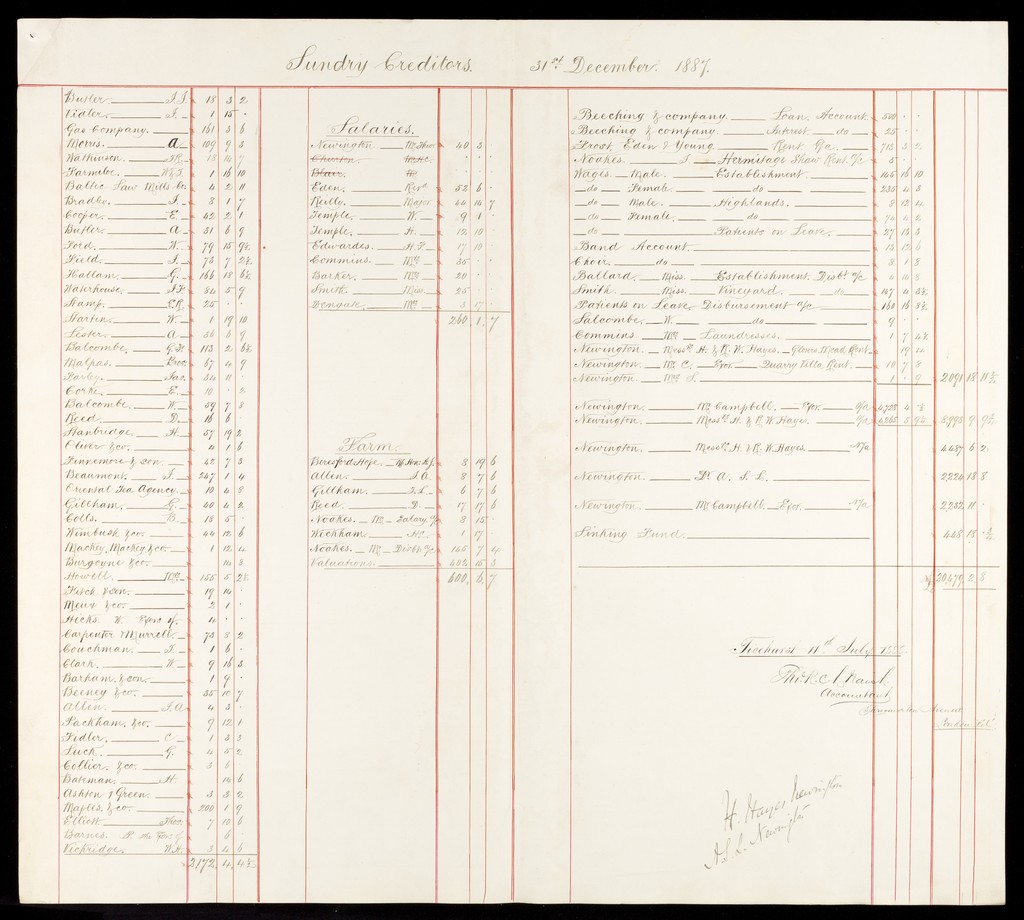 Sundry Creditors. 31st December. 1887.
Butler. 18 3 2
Vidler. F. 1 15 .
Gas Company. 161 3 6
Morris. A. 109 9 3
Watkinson. 18 14 7
Parmiloe. 1 16 10
Baltic Saw Mills Co. 4 2 11
Bradby. 8 1 7
Cooper. E. 42 2 1
Butler. A. 31 6 9
Ford. W. 79 15 9½
Field. 73 7 2½
Hallam. G. 166 18 6½
Waterhouse. 84 5 9
Stamp. 25 . .
Startin. W. 1 19 10
Lester. A. 36 6 9
Balcombe. 113 2 6½
Malpas. Bros. 67 4 9
Farley. Jas. 34 11 .
Corke. E.
Balcombe. W. 59 7 8
Reed. D. 16 6 .
Stanbridge. H. 37 19 2
Oliver & Co. 4 1 6
Pinnemore & Son. 42 7 3
Beaumont. 247 1 4
Oriental Tea Agency. 10 4 8
Gillham. G. 40 4 2
Colls. B. 13 5 .
Wimbush & Co. 44 12 6
Mackey, Mackey & Co. 1 12 4
Burgoyne & Co. 14 8
Howell. Mrs. 155 5 2½
Fitch & Son. 19 14 .
Meux & Co. 2 1 .
Hicks. W. Exors of. 4 . .
Carpenter Murrell. 73 5 2
Couchman. 1 6 .
Clark. W. 9 16 3
Barham. & Son. 1 9 .
Beeney & Co. 35 10 7
Allin. J.A. 4 3 .
Packham. & Co. 9 12 1
Fidler. C. 1 3 3
Luck. G. 4 5 2
Collier. & Co. 3 6
Bateman. H. 14 6
Ashton & Green. 3 3 2
Maples. & Co. 200 1 9
Elliott. Thos. 7 10 6
Barnes. P. the Exors of 6 .
Vickridge. W.H. 3 4 6
2,172. 4. 4½
Salaries.
Newington. Mr Theo. 40 3 .
Churton.
Blair.
Eden. Revd. 52 6 .
Reilly. Major 44 14 7
Temple. W. 9 1 .
Temple. H. 12 10 .
Edwardes. H.P. 17 10 .
Commins. Mrs. 35 . .
Barker. Mrs. 20 . .
Smith. Miss. 25 . .
Dengate. Mrs. 3 17 .
260. 1. 7
Farm.
Beresford Hope. 8 19 6
Allin. J.A. 8 7 6
Gillham. 6 7 6
Reed. D. 17 17 6
Noakes. Mr. Salary a/c 8 15 .
Wickham. 1 17 .
Noakes. Mr. Disbt a/c 145 7 4
Valuations. 402 15 3
600. 6. 7
Beeching & Company. Loan. Account 500 . .
Beeching & Company. Interest. do. 25 . .
Froot, Eden & Young. Kent. 713 3 2
Noakes. J. Hermitage Shaw Rent. a/c 5 . .
Wages. Male. Establishment. 145 16 10
do. Female. do. 235 4 3
do. Male. Highlands. 8 12 4
do. Female. do. 74 4 2
do. Patients on Leave. 27 13 3
Band Account. 13 12 6
Choir. do. 3 1 8
Ballard. Miss. Establishment. Disbt a/c
Smith. Miss. Vineyard. do. 47 4 3½
Patients on Leave. Disbursement a/c 160 16 8½
Balcombe. W. do. 9 . .
Commins. Mrs. Laundresses. 1 7 4½
Newington. Messrs H. & R. W. Hayes. Rent. 19 4
Newington. Mr. C. Exor. Quarry Villa, Rent. 10 7 8
Newington. 1 . 9 2091 18 11½
Newington. Mr. Campbell. Exor. 4725 4 .½
Newington. Messrs H. & R. W. Hayes. 4265 5 9½ 8995 9 9½
Newington. Messrs H. & R. W. Hayes. 4487 6 2
Newington. Dr. A. S. L. 2224 18 8
Newington. Mr. Campbell. Exor. 2232 11 .
Sinking Fund. 448 18 .¾
£ 20,479 2 8
Ticehurst 11th July 1888.
Accountant
H. Hayes Newington
A.S.L. Newington